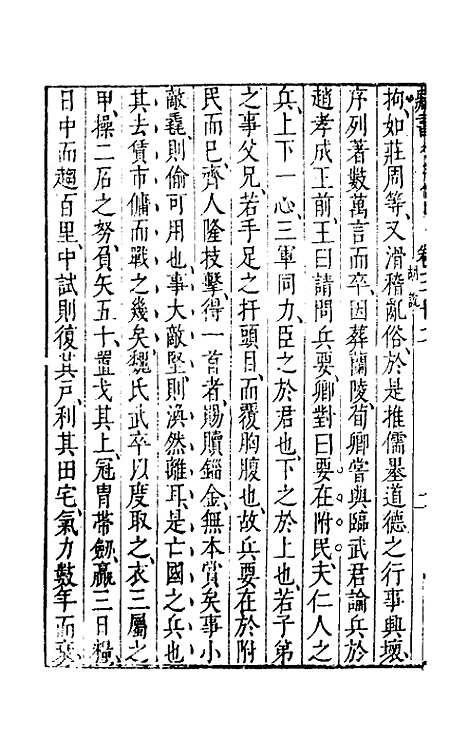 拘、如莊周等、又滑稽亂俗、於是推儒墨道德之行事興壞、
序列著數萬言而卒、因葬蘭陵、荀卿嘗與臨武君論兵於
趙孝成王前、王曰請問兵要、卿對曰要在附民、夫仁人之
兵、上下一心、三軍同力、臣之於君也、下之於上也、若子弟
之事父兄、若手足之扞頭目、而覆胸腹也、故兵要在於附
民而已、齊人隆技擊、得一首者、賜贖錙金、無本賞矣、事小
敵毳、則偷可用也、事大敵堅、則渙然離耳、是亡國之兵也
其去賃市傭而戰之幾矣、魏氏武卒以度取之、衣三屬之
甲、操二石之努、負矢五十、置戈其上、冠冑帶劒、羸三日糧、
日中而趨百里、中試則復其戶、利其田宅、氣力數年而衰、